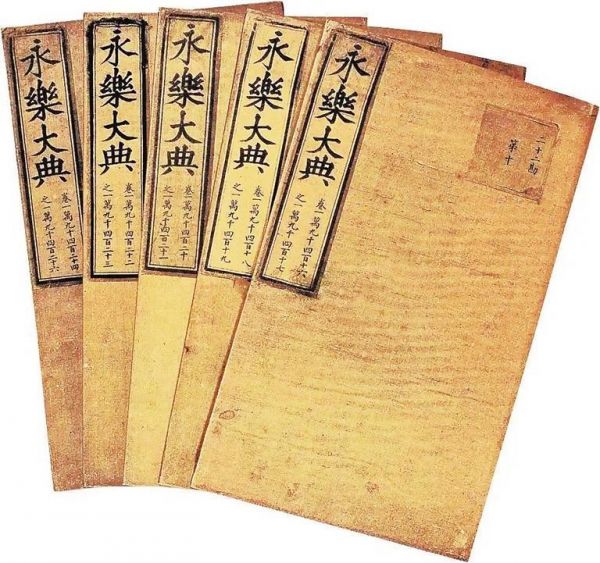 二十二勘
第十
永樂大典
卷一萬九千四百十六
之一萬九千四百十七
永樂大典
卷一萬九千四百十八
之一萬九千四百十九
永樂大典
卷一萬九千四百二十
之一萬九千四百二十一
永樂大典
卷一萬九千四百二十二
之一萬九千四百二十三
永樂大典
卷一萬九千四百二十四
之一萬九千四百二十六